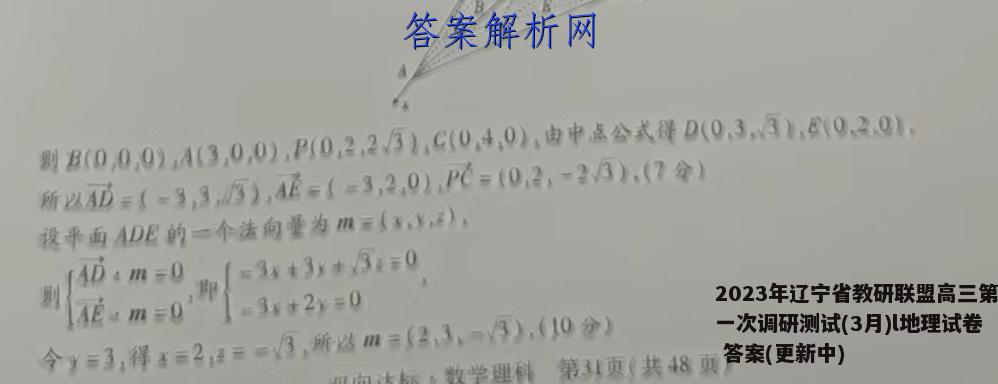 B
E
答案解析网
A
x
则B(0,0,0),A(3,0,0),P(0,2,2√3),C(0,4,0),由中点公式得D(0,3,√3),E(0,2,0),
所以AD⃗=(-3,3,√3),AE⃗=(-3,2,0),PC⃗=(0,2,-2√3),(7分)
设平面ADE的一个法向量为m=(x,y,z),
则{AD⃗·m=0 ,即{-3x+3y+√3z=0 ,
AE⃗·m=0 -3x+2y=0
令y=3,得x=2,z=-√3,所以m=(2,3,-√3),(10分)
双向达标·数学理科 第31页(共48页)
2023年辽宁省教研联盟高三第
一次调研测试(3月)l地理试卷
答案(更新中)